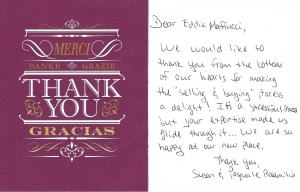 MERCI
DANKE GRAZIE
THANK
YOU
GRACIAS
Dear Eddie Maffucci,
We would like to
thank you from the bottom
of our hearts for making
the "selling & buying" process
a delight! It's a stressful process
but your expertise made us
glide through it... We are so
happy at our new place.
Thank you,
Susan & Pasquale